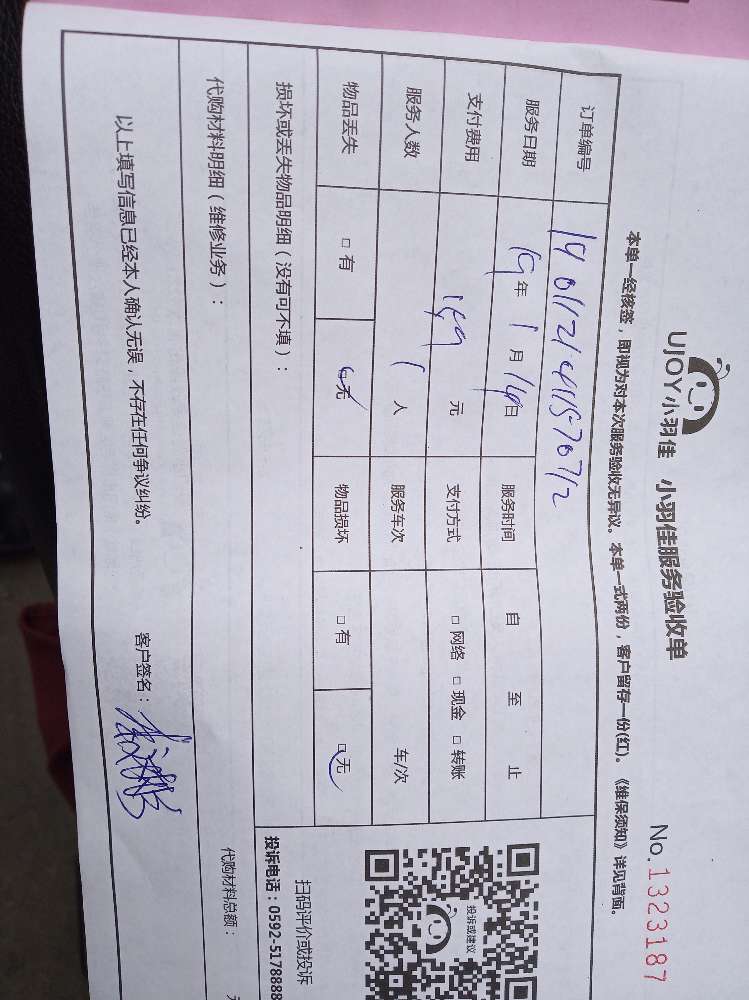 UJOY小羽佳 小羽佳服务验收单
No.1323187
本单一经核签，即视为对本次服务验收无异议。本单一式两份，客户留存一份(红)。《维保须知》详见背面。
订单编号
服务日期 19年1月14日 服务时间 自 至 止
支付费用 元 支付方式 □网络 □现金 □转账
服务人数 1人 服务车次 车/次
物品丢失 □有 □无 物品损坏 □有 □无
损坏或丢失物品明细（没有可不填）：
代购材料明细（维修业务）：
代购材料总额：
以上填写信息已经本人确认无误，不存在任何争议纠纷。
客户签名：
投诉或建议
扫码评价或投诉
投诉电话：0592-5178888